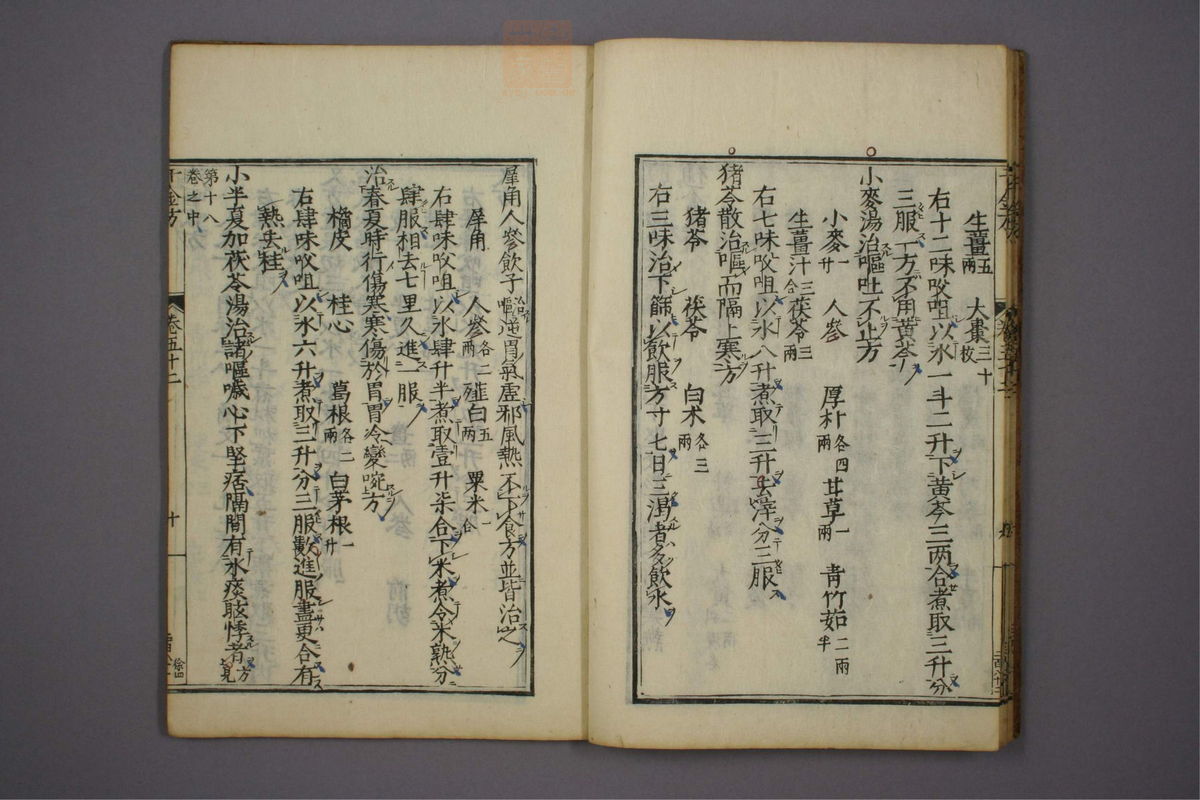 生薑五兩 大棗三十枚
右十二味㕮咀以水一斗二升下黃芩三兩合煮取三升分
三服一方不用黃芩
小麥湯治嘔吐不止方
小麥一升 人參 厚朴各四兩 甘草一兩 青竹茹二兩半
生薑汁三合 茯苓三兩
右七味㕮咀以水八升煮取三升去滓分三服
豬苓散治嘔而隔上寒方
豬苓 茯苓 白朮各三兩
右三味治下篩以飲服方寸匕日三渴者多飲水
犀角人參飲子治嘔逆胃氣虛邪風熱不下食方並皆治之
犀角 人參各二兩 薤白五兩 粟米一合
右肆味㕮咀以水肆升半煮取壹升柒合下米煮令米熟分
肆服相去七里久進一服
治春夏時行傷寒寒傷於胃胃冷變啘方
橘皮 桂心 葛根各二兩 白茅根一升
右肆味㕮咀以水六升煮取三升分三服數數進服盡更合有
熱去桂
小半夏加茯苓湯治諸嘔噦心下堅痞隔間有水痰眩悸者方見
第十八
卷之中
千金方 卷五十二 十 徐四